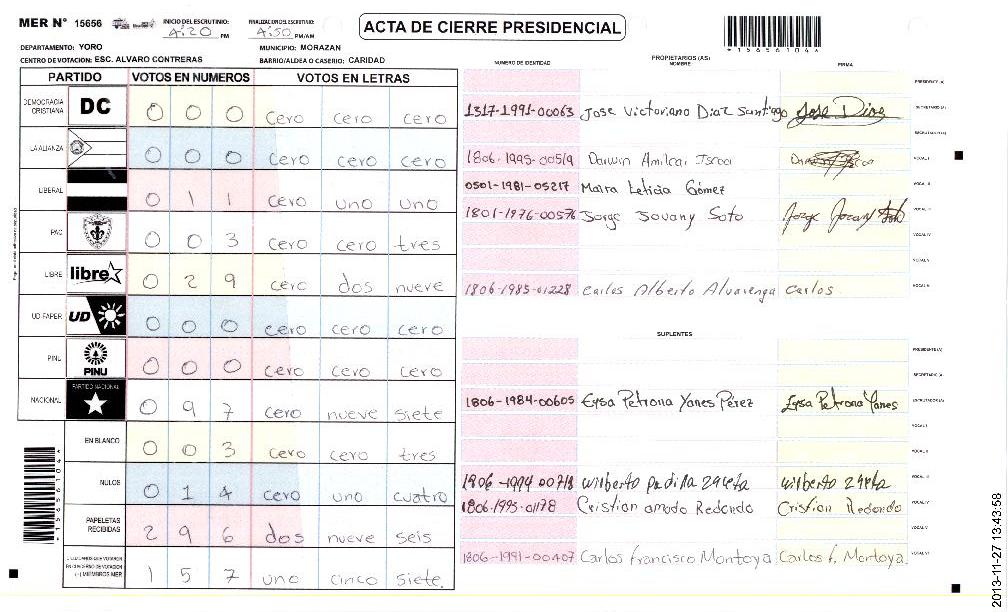 MER N° 15656 INICIO DEL ESCRUTINIO: 4:20 PM FINALIZACION DEL ESCRUTINIO: 4:50 PM/AM
ACTA DE CIERRE PRESIDENCIAL
*15656104*
DEPARTAMENTO: YORO MUNICIPIO: MORAZAN
CENTRO DE VOTACION: ESC. ALVARO CONTRERAS BARRIO/ALDEA O CASERIO: CARIDAD
PARTIDO VOTOS EN NUMEROS VOTOS EN LETRAS
DEMOCRACIA CRISTIANA DC 0 0 0 cero cero cero
LA ALIANZA 0 0 0 cero cero cero
LIBERAL 0 1 1 cero uno uno
PAC 0 0 3 cero cero tres
LIBRE libre 0 2 9 cero dos nueve
UD-FAPER UD 0 0 0 cero cero cero
PINU PINU 0 0 0 cero cero cero
NACIONAL PARTIDO NACIONAL 0 9 7 cero nueve siete
EN BLANCO 0 0 3 cero cero tres
NULOS 0 1 4 cero uno cuatro
PAPELETAS RECIBIDAS 2 9 6 dos nueve seis
CIUDADANOS QUE VOTARON EN CUADERNO DE VOTACION (+) MIEMBROS MER 1 5 7 uno cinco siete
*15656104*
NUMERO DE IDENTIDAD PROPIETARIOS (AS) NOMBRE FIRMA
PRESIDENTE (A)
1317-1991-00063 Jose Victoriano Diaz Santiago Jose Diaz SECRETARIO (A)
ESCRUTADOR (A)
1806-1995-00519 Darwin Amilcar VOCAL I
0501-1981-05217 Maira Leticia Gómez VOCAL II
1801-1976-00576 Jorge Jovany Soto Jorge Jovany Soto VOCAL III
VOCAL IV
VOCAL V
1806-1985-01228 Carlos Alberto Alvarenga Carlos VOCAL VI
SUPLENTES
PRESIDENTE (A)
SECRETARIO (A)
1806-1984-00605 Eysa Petrona Yanes Pérez Eysa Petrona Yanes ESCRUTADOR (A)
VOCAL I
VOCAL II
1806-1994-00718 wilberto padilla zaleta wilberto zaleta VOCAL III
1806-1995-01178 Cristian amado Redondo Cristian Redondo VOCAL IV
VOCAL V
1806-1991-00407 Carlos Francisco Montoya Carlos f. Montoya. VOCAL VI
2013-11-27 13:43:58